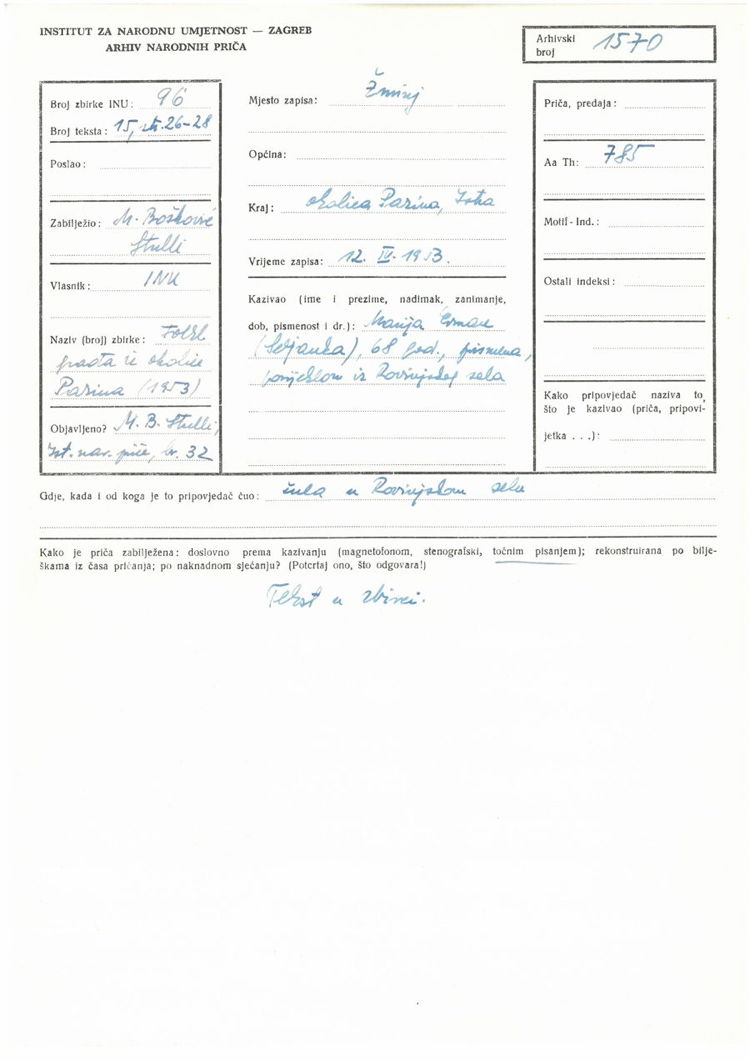 INSTITUT ZA NARODNU UMJETNOST — ZAGREB
ARHIV NARODNIH PRIČA
Arhivski broj 1570
Broj zbirke INU: 96
Broj teksta: 15, str. 26-28
Poslao:
Zabilježio: M. Bošković
Stulli
Vlasnik: INU
Naziv (broj) zbirke: Folkl.
građa iz okolice
Pazina (1953)
Objavljeno? M. B. Stulli,
Ist. nar. priče, br. 32
Mjesto zapisa: Žminj
Općina:
Kraj: okolica Pazina, Istra
Vrijeme zapisa: 12. IV. 1953.
Kazivao (ime i prezime, nadimak, zanimanje,
dob, pismenost i dr.): Marija
(Seljanka), 68 god., pismena,
porijeklom iz Rovinjskog sela
Priča, predaja:
Aa Th: 785
Motif - Ind.:
Ostali indeksi:
Kako pripovjedač naziva to,
što je kazivao (priča, pripovi-
jetka . . .):
Gdje, kada i od koga je to pripovjedač čuo: čula u Rovinjskom selu
Kako je priča zabilježena: doslovno prema kazivanju (magnetofonom, stenografski, točnim pisanjem); rekonstruirana po bilje-
škama iz časa pričanja; po naknadnom sjećanju? (Potcrtaj ono, što odgovara!)
Tekst u zbirci.